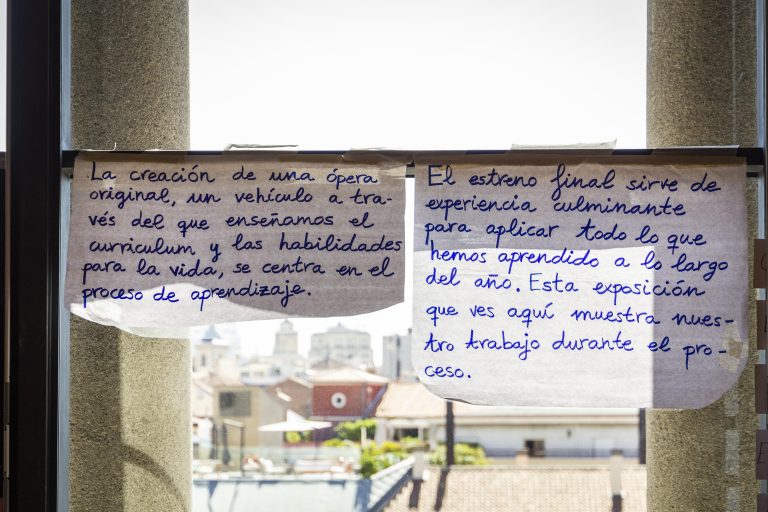 La creación de una ópera
original, un vehículo a tra-
vés del que enseñamos el
curriculum y las habilidades
para la vida, se centra en el
proceso de aprendizaje.
El estreno final sirve de
experiencia culminante
para aplicar todo lo que
hemos aprendido a lo largo
del año. Esta exposición
que ves aquí muestra nues-
tro trabajo durante el pro-
ceso.